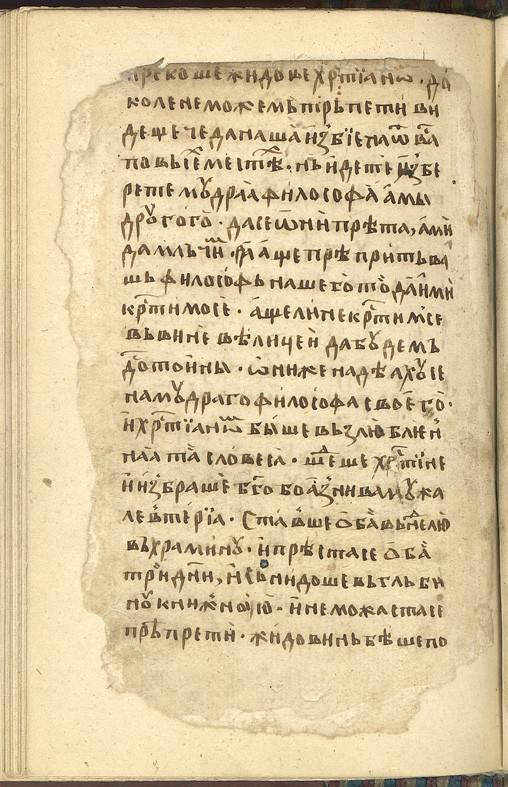 рекоше жидове хр҇тїанѡ · до
коле не можемь прѣпети ви
деще чеда наша из̾бїена ѿ ва
по въсѐ мѣстѣ · нь идете из̾бе
рете моу҆дра фїлософа а мы
дрꙋгого · да се ѡни прѣта, а ми
да мльчи · аще прѣприть ва
шь философь нашего то да и ми
кр҇тимо се · аще ли не кр҇тимсе
вь вине вѣличеи да бꙋдемь
достоины · ѡни же надѣахꙋсе
на мꙋдраго философа своего ·
и хр҇тїанѡ быше вьзлюблени
на та словеса · шеше хр҇тїне
и из̾браше б҃гобоазнива мꙋжа
лев̾терїа · став̾ше оба вь нелю
вь храминꙋ · и прѣстасе оба
три дни, и снидоше вь гльби
нꙋ книжнꙋю · и не можаста се
прѣпрети · жидовинь бѣше по